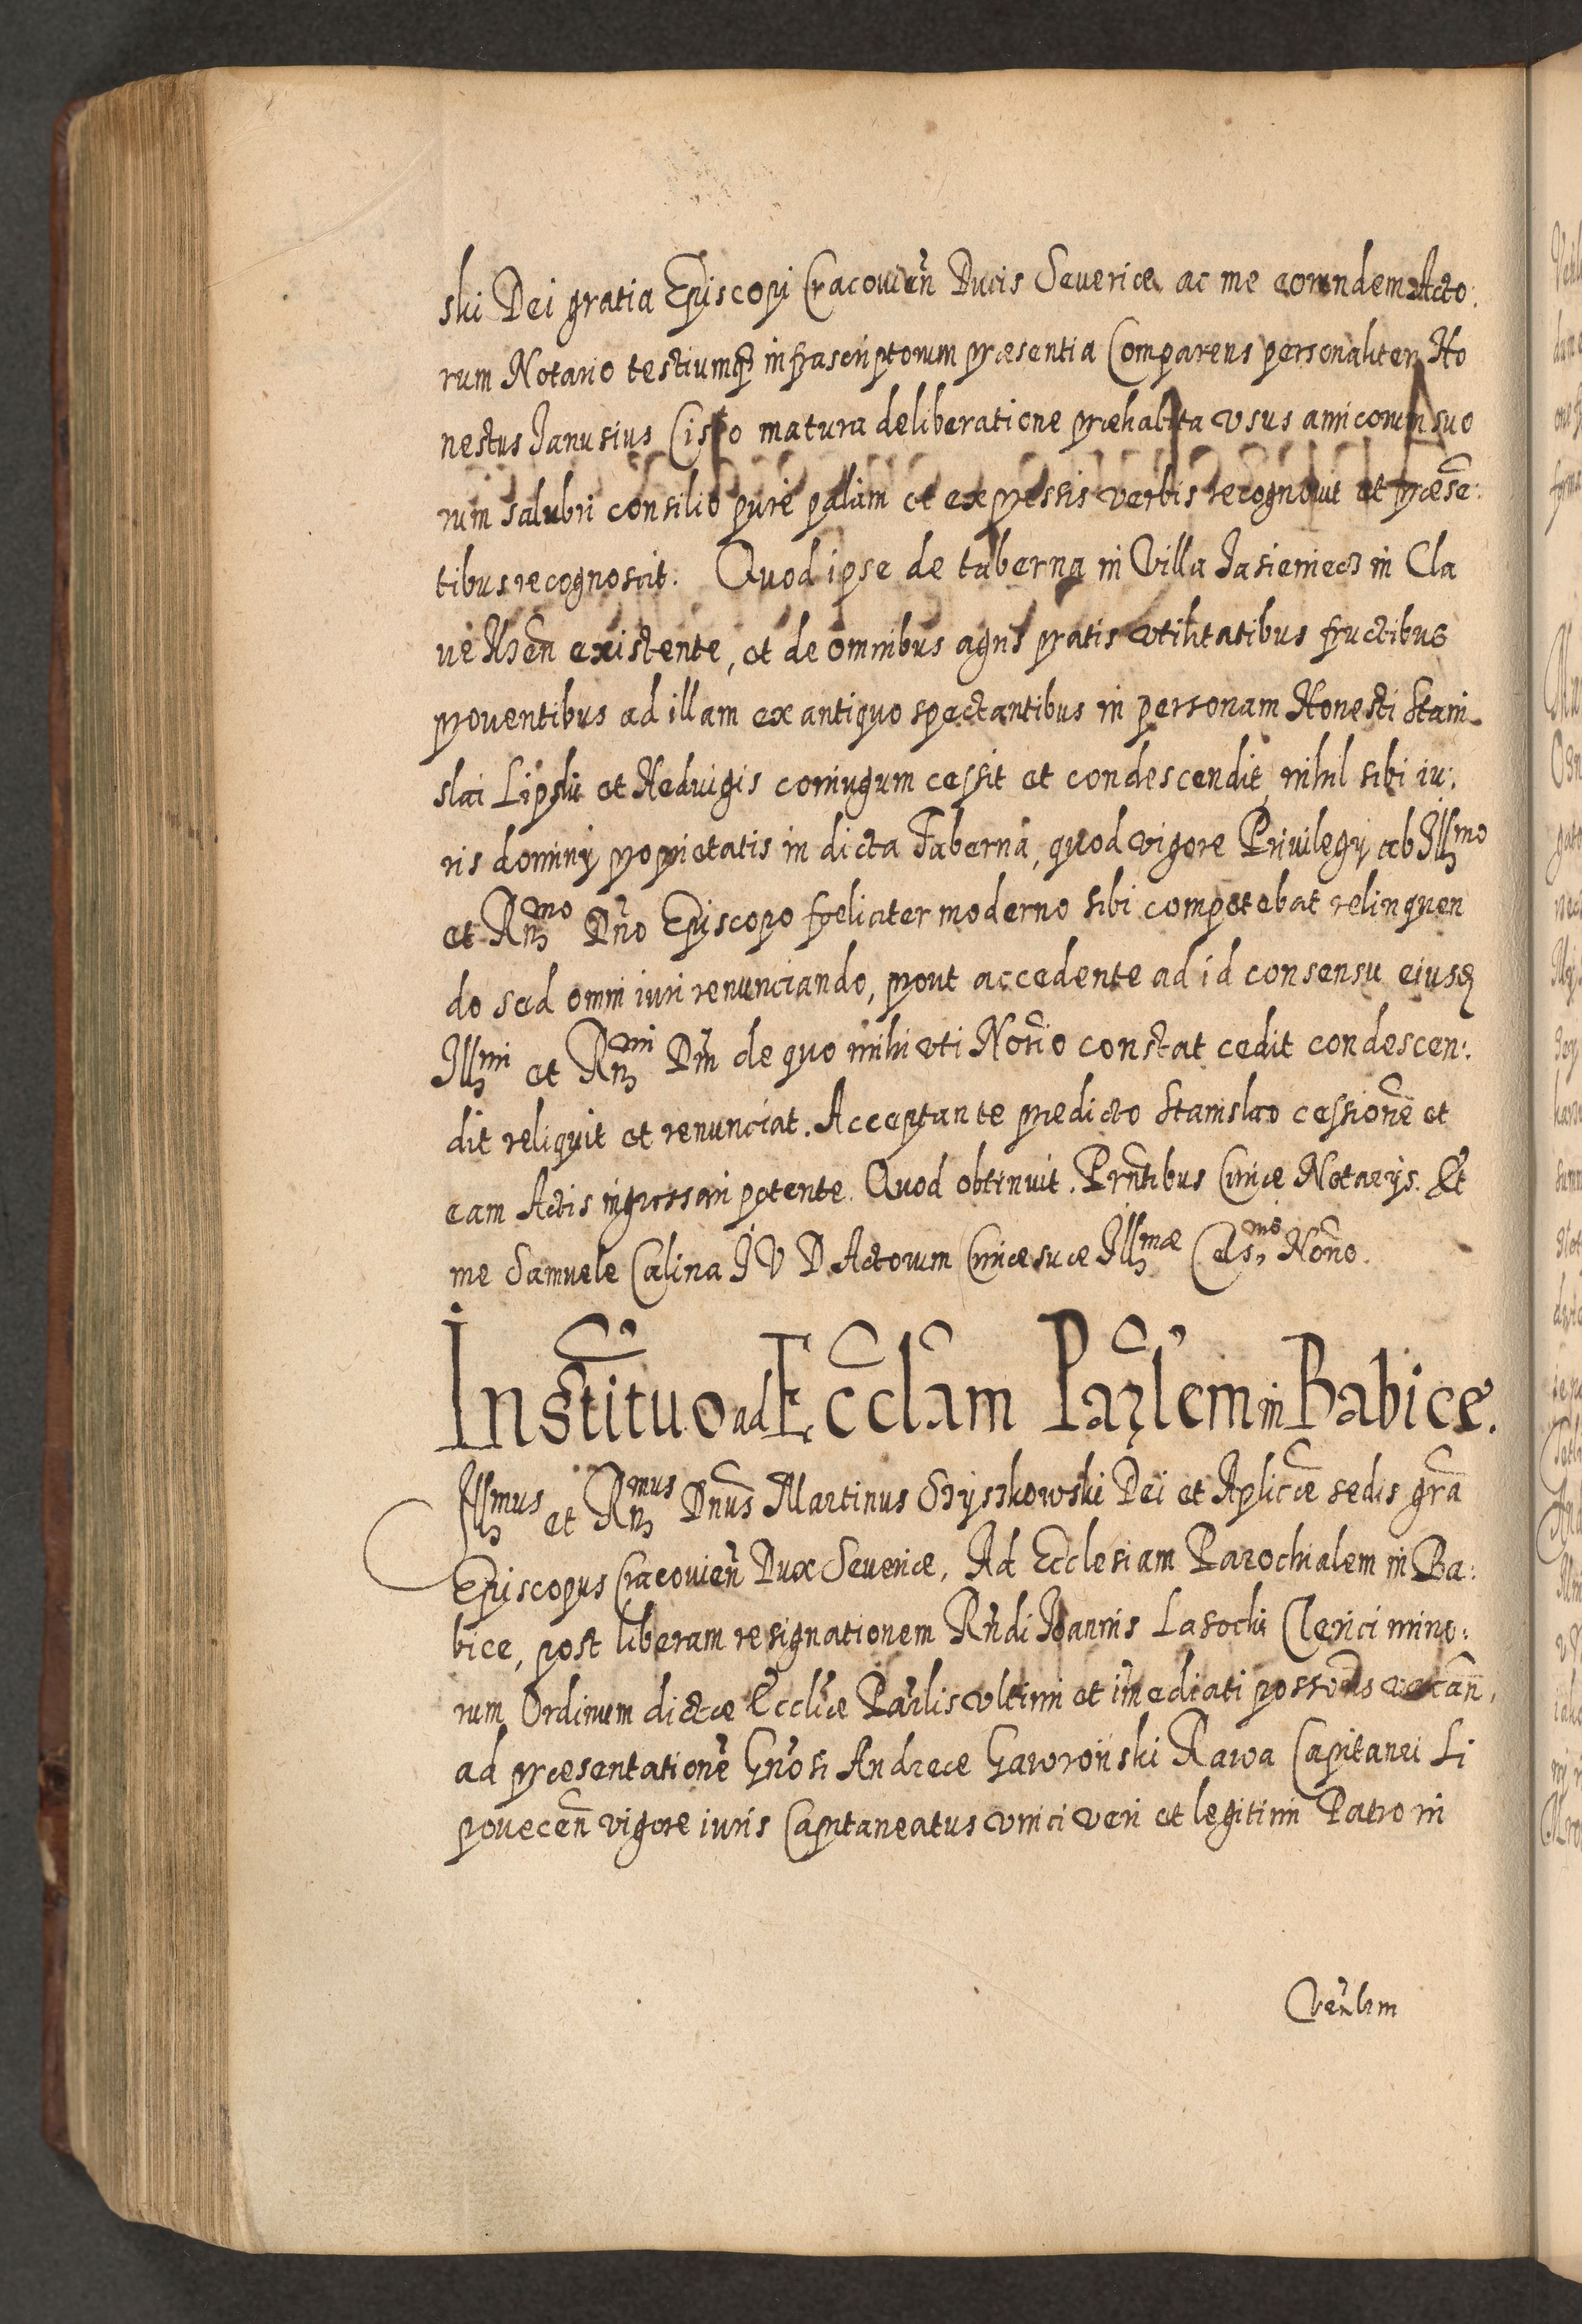 ski Dei gratia Episcopi Cracovien̄ Ducis Severiæ ac me eorundem Acto:
rum Notario testiumq́ꝫ infrascriptorum præsentia Comparens personaliter Ho
nestus Janusius Cisło matura deliberatione præhabita vsus amicorum suo
rum salubri consilio purè palàm et expressis verbis recognovit et præsẽ:
tibus recognoscit. Quod ipse de taberna in Villa Jasieniecz in Cla
ue existente, et de omnibus agris pratis vtilitatibus fructibus
proventibus ad illam ex antiquo spectantibus in personam Honesti Stani
slai Lipski et Hedvigis coniugum cessit et condescendit, nihil sibi iu:
ris dominÿ proprietatis in dicta Taberna, quod vigore Privilegÿ ab Illmo
et Rmo Dño Episcopo fæliciter moderno sibi competebat relinquen
do sed omni iuri renunciando, prout accedente ad id consensu eiusd
Illmi et Rmi Dñi de quo mihi vti Not̃io constat cedit condescen:
dit reliquit et renunciat. Acceptante prædicto Stanislao cessionẽ et
eam Actis ingrossari petente. Quod obtinuit. Prñtibus Curiæ Notarÿs. Et
me Samuele Calina J V D Actorum Curiæ suæ Illmæ Cels. Notr̃o.
Institutio ad Ecclãm Par̃lem in Babice.
Illmus et Rmus Dnũs Martinus Szyszkowski Dei et Aplicæ sedis grã
Episcopus Cracovien̄ Dux Severiæ, Ad Ecclesiam Parochialem in Ba:
bice, post liberam resignationem Rñdi Joannis Lasocki Clerici mino:
rum Ordinum dictæ Eccliæ Par̃lis vltimi et im̃ediati possoris vacan̄,
ad præsentationẽ Gñosi Andreæ Gawroński Rawa Capitanei Li
povecen̄ vigore iuris Capitaneatus vnici veri et legitimi Patroni
Ver̃lem